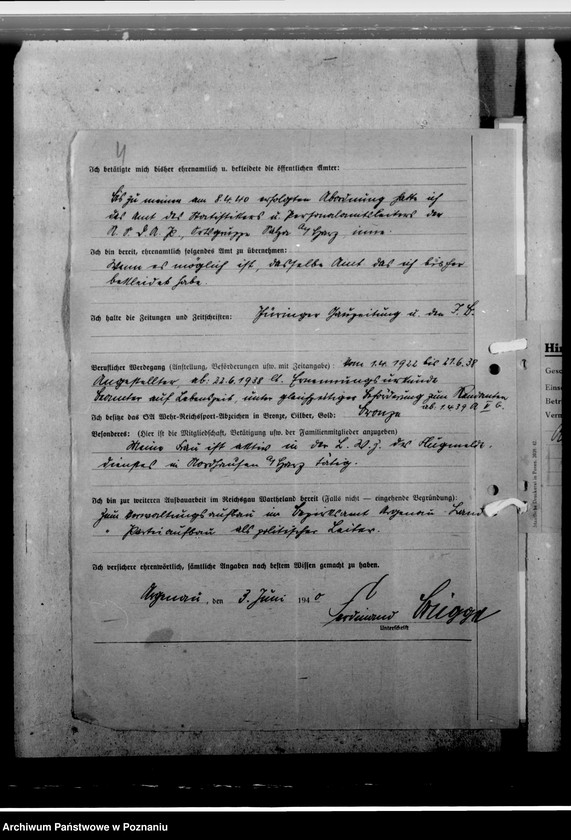 4
Ich betätigte mich bisher ehrenamtlich u. bekleidete die öffentlichen Ämter:
Bis zu meiner am 8.4.40 erfolgten Abordnung hatte ich
das Amt des Statistikers u. Personalamtsleiters der
N. S. D. A. P., Ortsgruppe Salza a/Harz inne.
Ich bin bereit, ehrenamtlich folgendes Amt zu übernehmen:
Wenn es möglich ist, dasselbe Amt das ich bisher
bekleidet habe
Ich halte die Zeitungen und Zeitschriften: Thüringer Gauzeitung u. den
Beruflicher Werdegang (Anstellung, Beförderungen usw. mit Zeitangabe): vom 1.4. 1922 bis 21.6.38
Angestellter, ab: 22.6.1938 lt. Ernennungsurkunde
Beamter auf Lebenszeit, unter gleichzeitiger Beförderung zum Rendanten
ab. 1.4.39 A
Ich besitze das SA Wehr-Reichsport-Abzeichen in Bronze, Silber, Gold: Bronze
Besonderes: (Hier ist die Mitgliedschaft, Betätigung usw. der Familienmitglieder anzugeben)
Meine Frau ist aktiv in der des Flugmelde-
dienstes in Nordhausen a/Harz tätig.
Ich bin zur weiteren Aufbauarbeit im Reichsgau Wartheland bereit (Falls nicht — eingehende Begründung):
Zum Verwaltungsaufbau im Bezirksamt Argenau-Land
" Parteiaufbau als politischer Leiter.
Ich versichere ehrenwörtlich, sämtliche Angaben nach bestem Wissen gemacht zu haben.
Argenau, den 3. Juni 1940
Ferdinand
Unterschrift
Archiwum Państwowe w Poznaniu